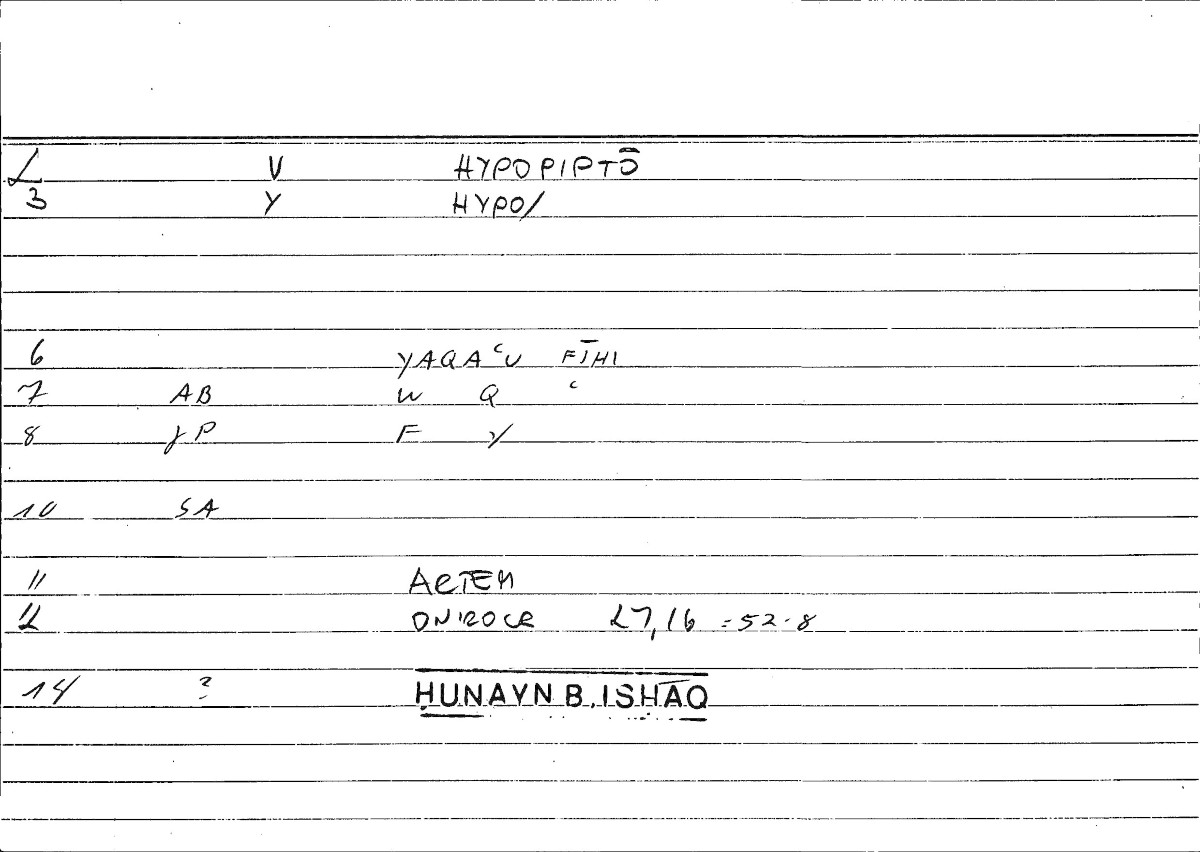 2 V HYPOPIPTŌ
3 Y HYPO/
6 YAQAʿU FĪHI
7 AB W Q ʿ
8 JP F Y
10 SA
11 ARTEM
12 ONIROCR 27,16 = 52.8
14 ? ḤUNAYN B. ISḤĀQ